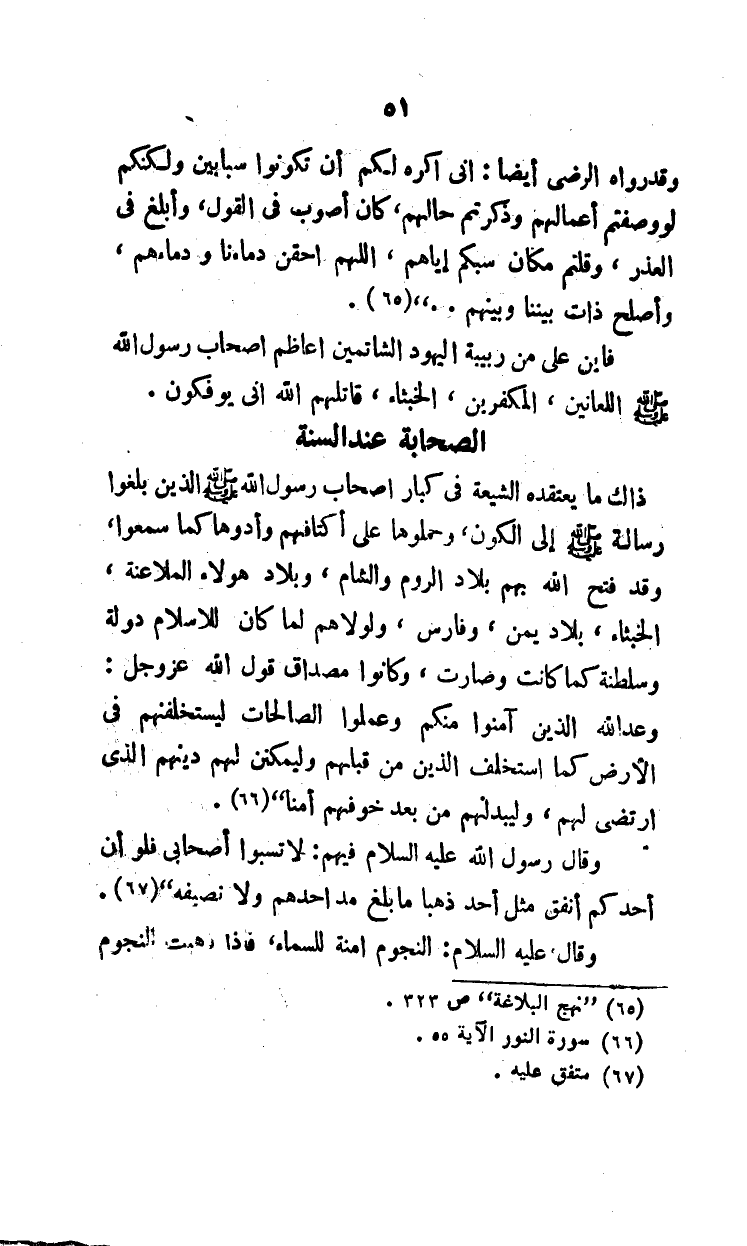 ٥١
وقدرواه الرضى أيضا: انى اكره لكم أن تكونوا سبابين ولكنكم
لووصفتم أعمالهم وذكرتم حالهم، كان أصوب فى القول، وأبلغ فى
العذر، وقلتم مكان سبكم إياهم، اللهم احقن دماءنا و دماءهم،
وأصلح ذات بيننا وبينهم . .،،(٦٥) .
فاين على من ربيبة اليهود الشاتمين اعاظم اصحاب رسول الله
ﷺ اللعانين، المكفرين، الخبثاء، قاتلهم الله انى يوفكون .
الصحابة عندالسنة
ذاك ما يعتقده الشيعة فى كبار اصحاب رسول الله ﷺ الذين بلغوا
رسالة ﷺ إلى الكون، وحملوها على أكتافهم وأدوها كما سمعوا،
وقد فتح الله بهم بلاد الروم والشام، وبلاد هولاء الملاعنة،
الخبثاء، بلاد يمن، وفارس، ولولاهم لما كان للاسلام دولة
وسلطنة كما كانت وصارت، وكانوا مصداق قول الله عزوجل:
وعدالله الذين آمنوا منكم وعملوا الصالحات ليستخلفنهم فى
الأرض كما استخلف الذين من قبلهم وليمكنن لهم دينهم الذى
ارتضى لهم، وليبدلنهم من بعد خوفهم أمنا“(٦٦) .
وقال رسول الله عليه السلام فيهم: لاتسبوا أصحابى فلو أن
أحدكم أنفق مثل أحد ذهبا مابلغ مد احدهم ولا نصيفه“(٦٧) .
وقال عليه السلام: النجوم امنة للسماء، فاذا ذهبت النجوم
(٦٥) ”نهج البلاغة“ ص ٣٢٣ .
(٦٦) سورة النور الآية ٥٥ .
(٦٧) متفق عليه .